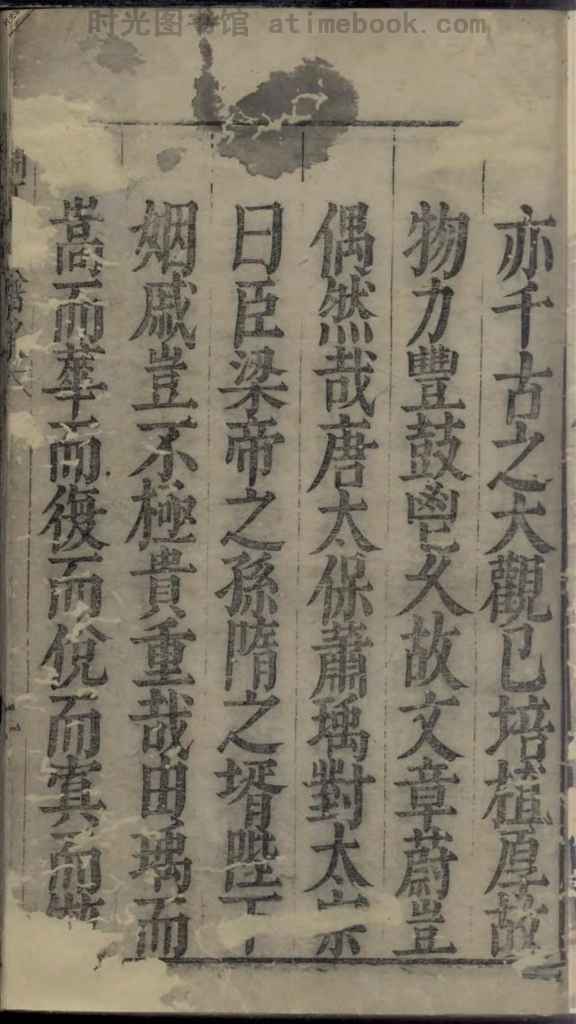 时光图书馆 atimebook.com
亦千古之大觀已培植厚故
物力豐鼓鬯久故文章蔚豈
偶然哉唐太保蕭瑀對太宗
曰臣梁帝之孫隋之壻陛下
姻戚豈不極貴重哉由瑀而
嵩而華而復而俛而寘而